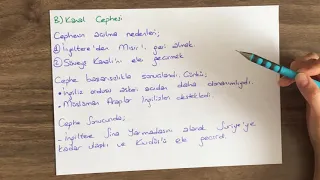 B) Kanal Cephesi
Cephenin açılma nedenleri;
① İngiltere'den Mısır'ı geri almak.
② Süveyş Kanalı'nı ele geçirmek
Cephe başarısızlıkla sonuçlandı. Çünkü;
• İngiliz ordusu askeri açıdan daha donanımlıydı.
• Müslüman Araplar İngilizleri destekledi.
Cephe Sonucunda;
- İngiltere Sina Yarımadasını alarak Suriye'ye
kadar ulaştı ve Kudüs'ü ele geçirdi.